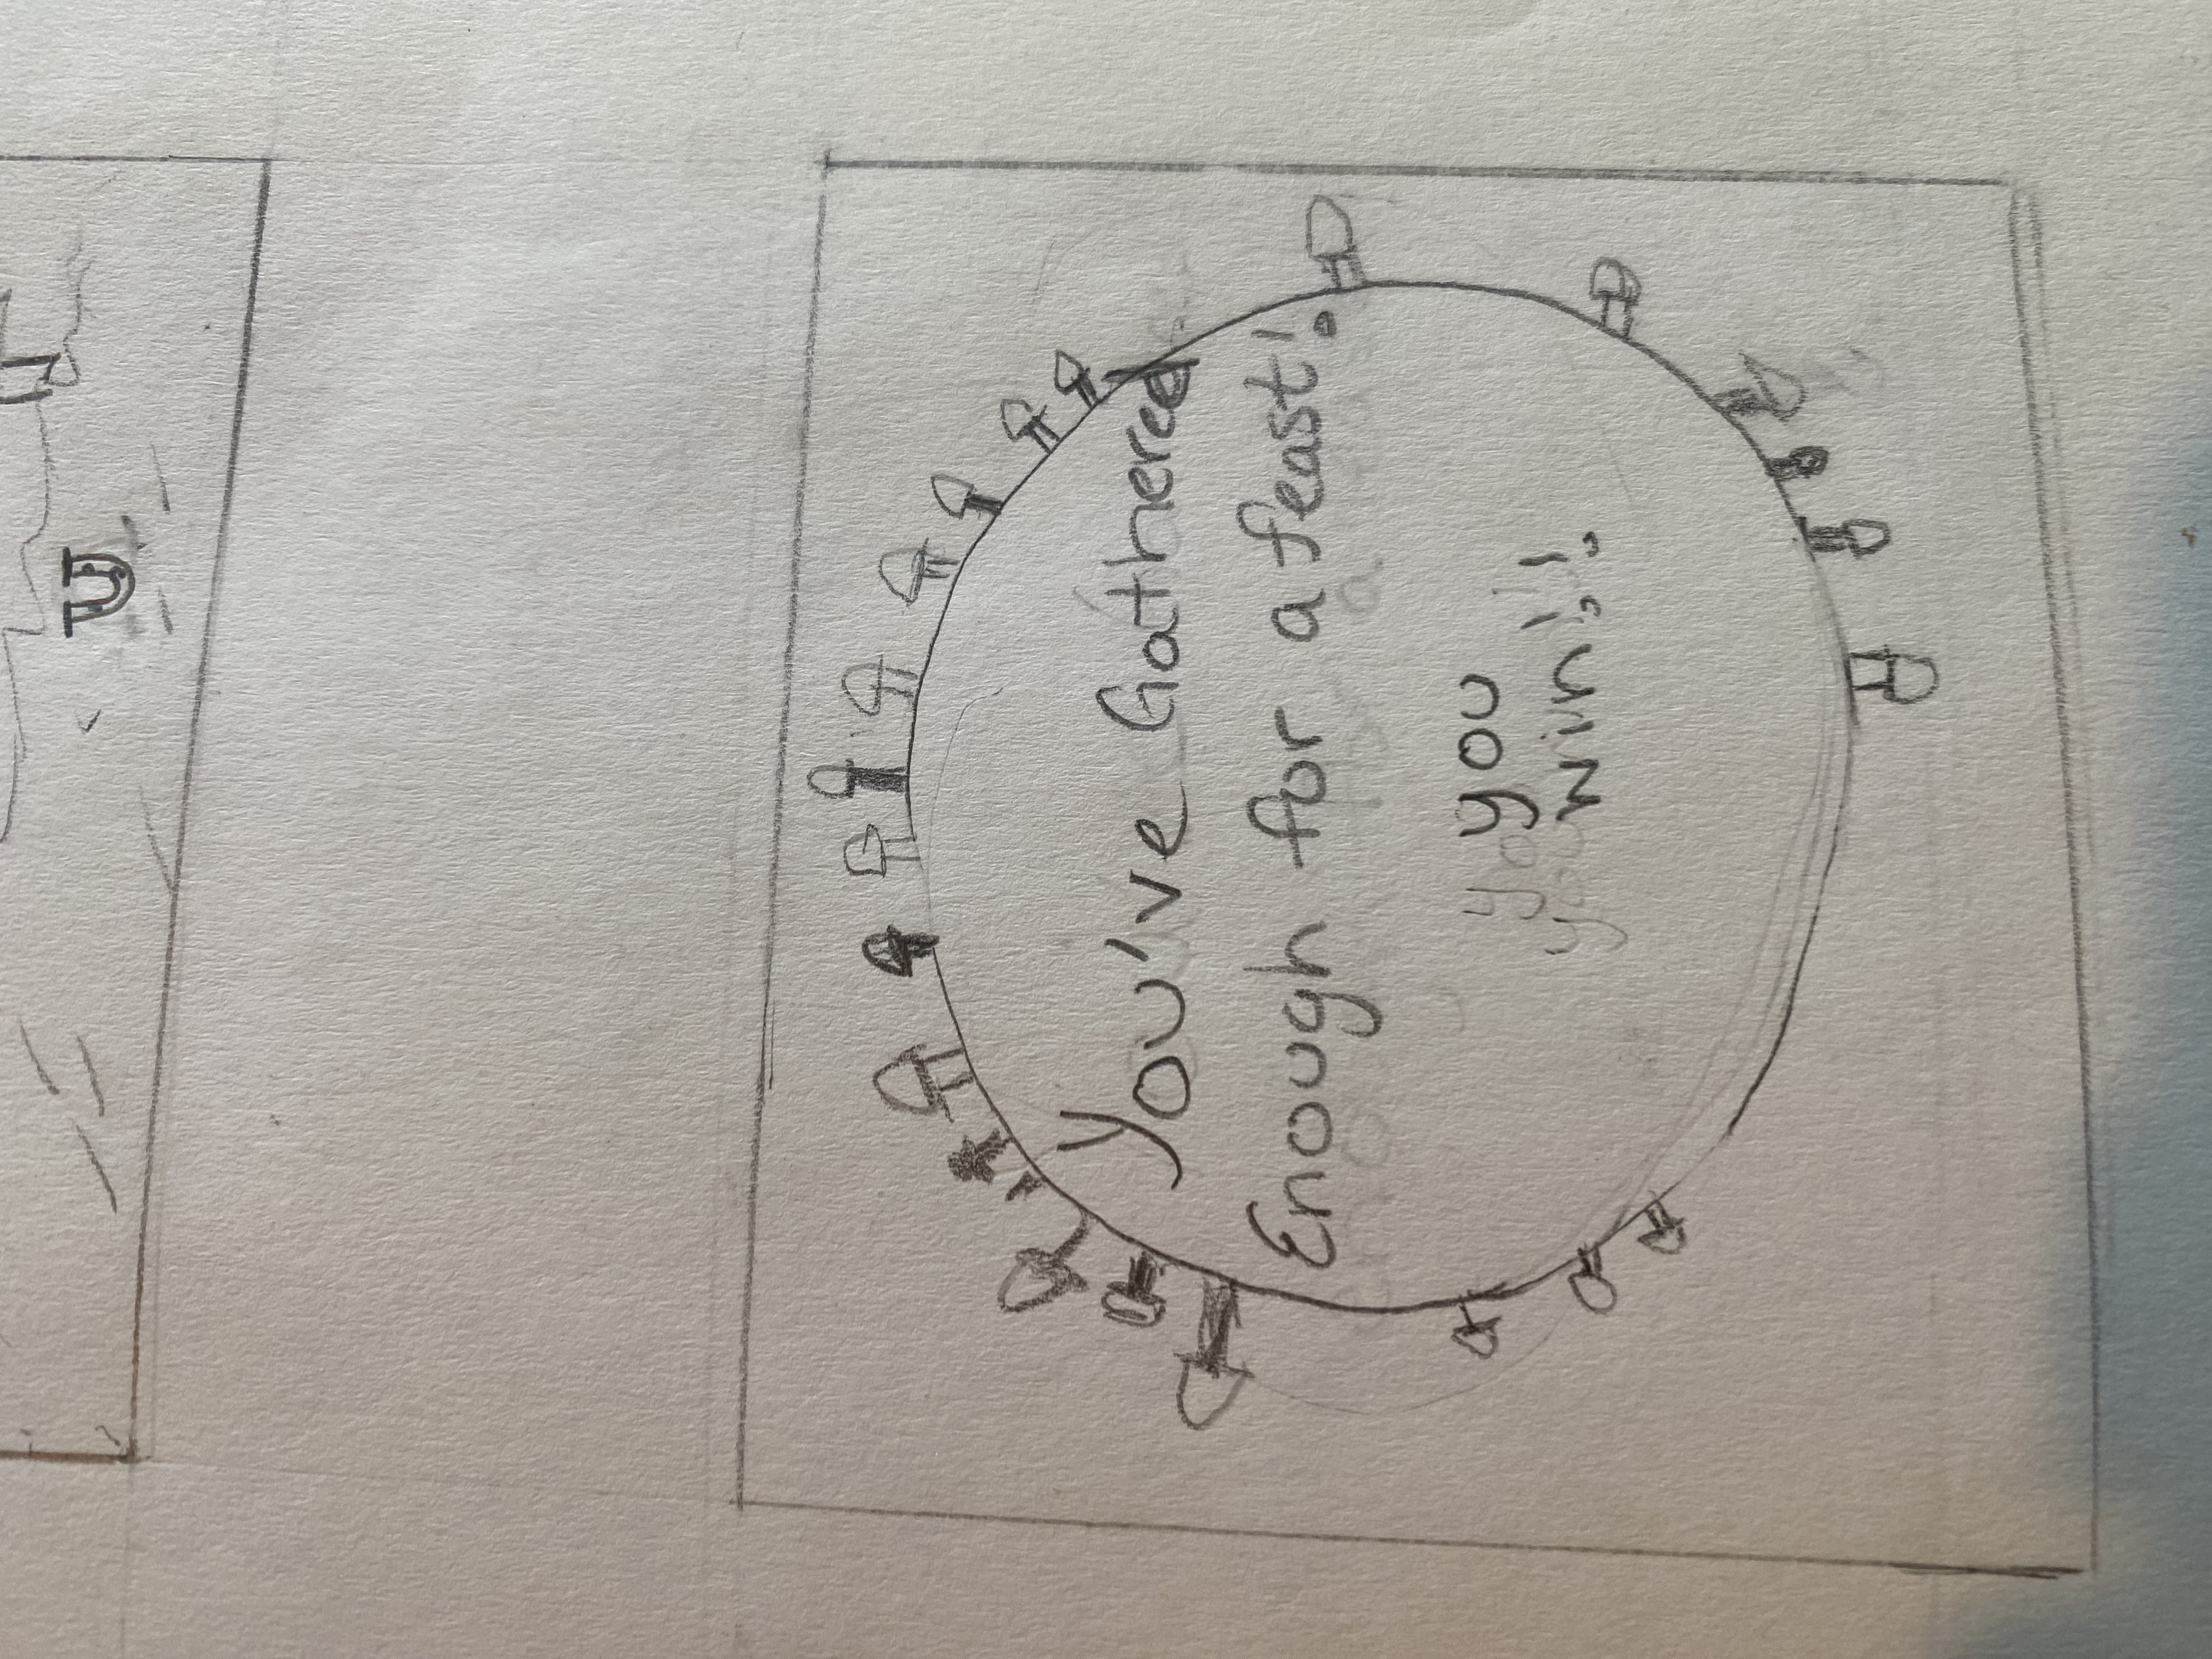 You've Gathered
Enough for a feast!
you
win!!